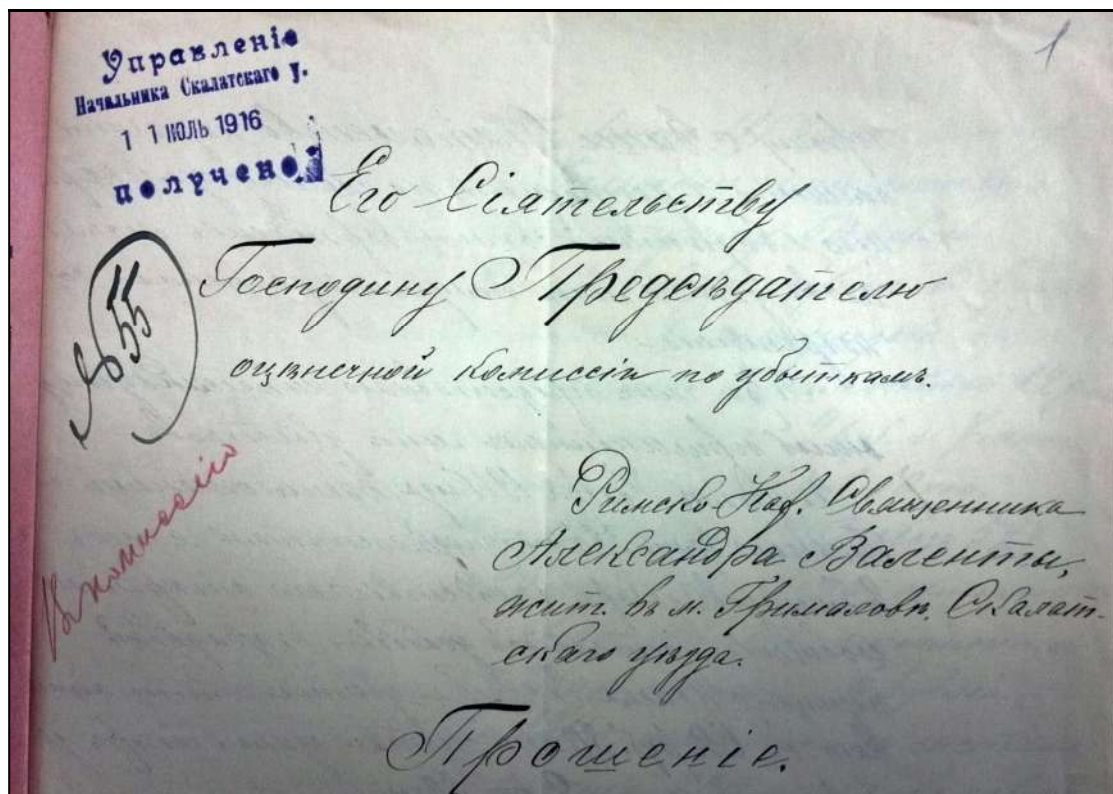 Управленіе
Начальника Скалатскаго у.
1 1 ІЮЛЬ 1916
получено
1
Его Сіятельству
Господину Предсѣдателю
оцѣночной комиссіи по убыткамъ.
№ 55
Въ комиссію
Римско Каѳ. Священника
Александра Валенты,
жит. въ м. Грималовѣ, Скалат-
скаго уѣзда.
Прошеніе.